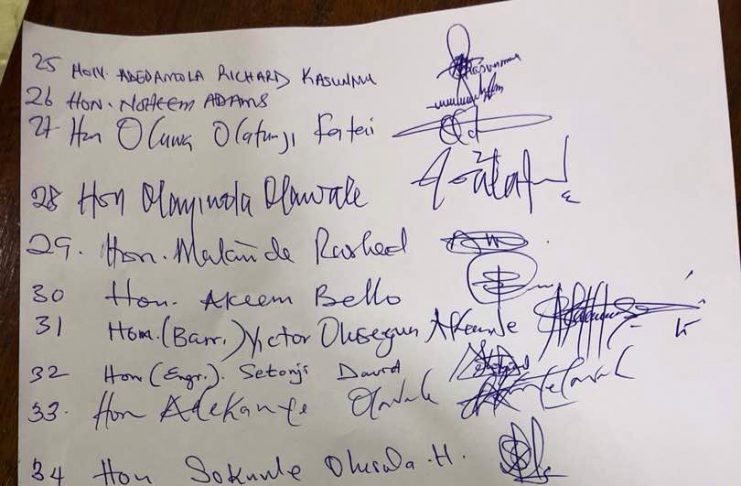 25 HON. ADEDAMOLA RICHARD KASUNMU
26 HON. NOHEEM ADAMS
27 Hon Oluwa Olatunji Fatai
28 Hon Olayinola Olawale
29. Hon. Makinde Rasheed
30 Hon. Akeem Bello
31 Hon. (Barr.) Victor Olusegun Akande
32 Hon (Engr.). Setonji David
33. Hon Adekanye Olawale
34 Hon Sokunle Olusola .H.